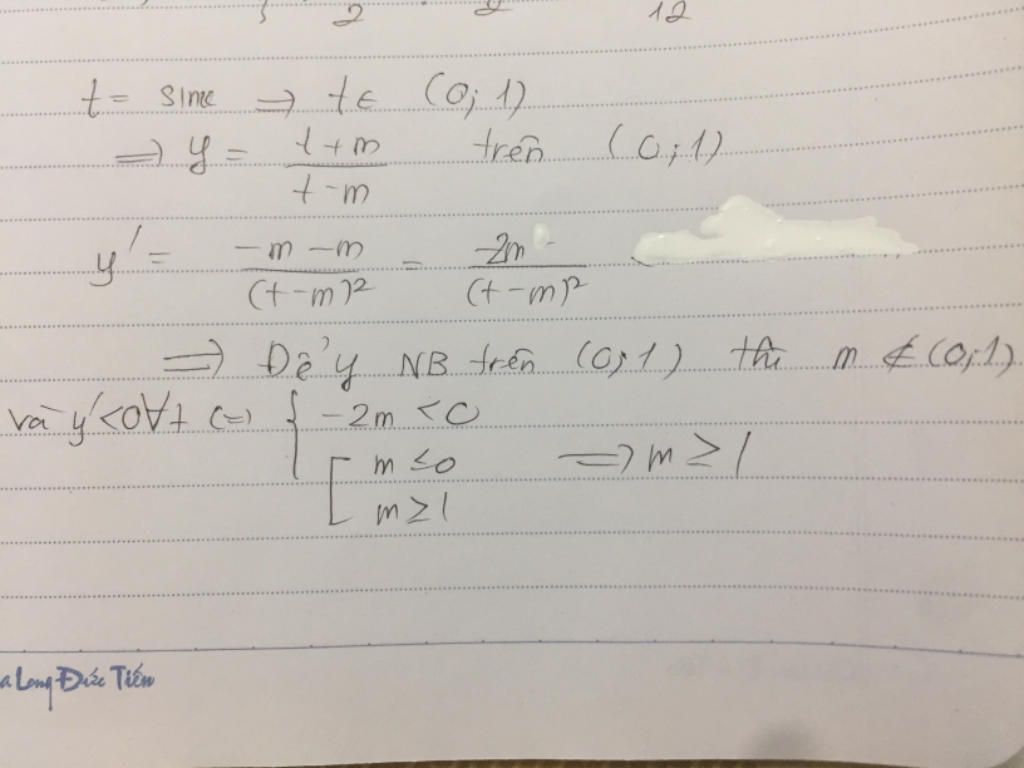 2 2 12
t = sinx => t ∈ (0; 1)
=> y = (t+m)/(t-m) trên (0; 1)
y' = (-m-m)/(t-m)² = (-2m)/(t-m)²
=> Để y NB trên (0; 1) thì m ∉ (0; 1)
và y' < 0 ∀t (=) { -2m < 0
[ m ≤ 0 => m ≥ 1
m ≥ 1
a Long Đức Tiến